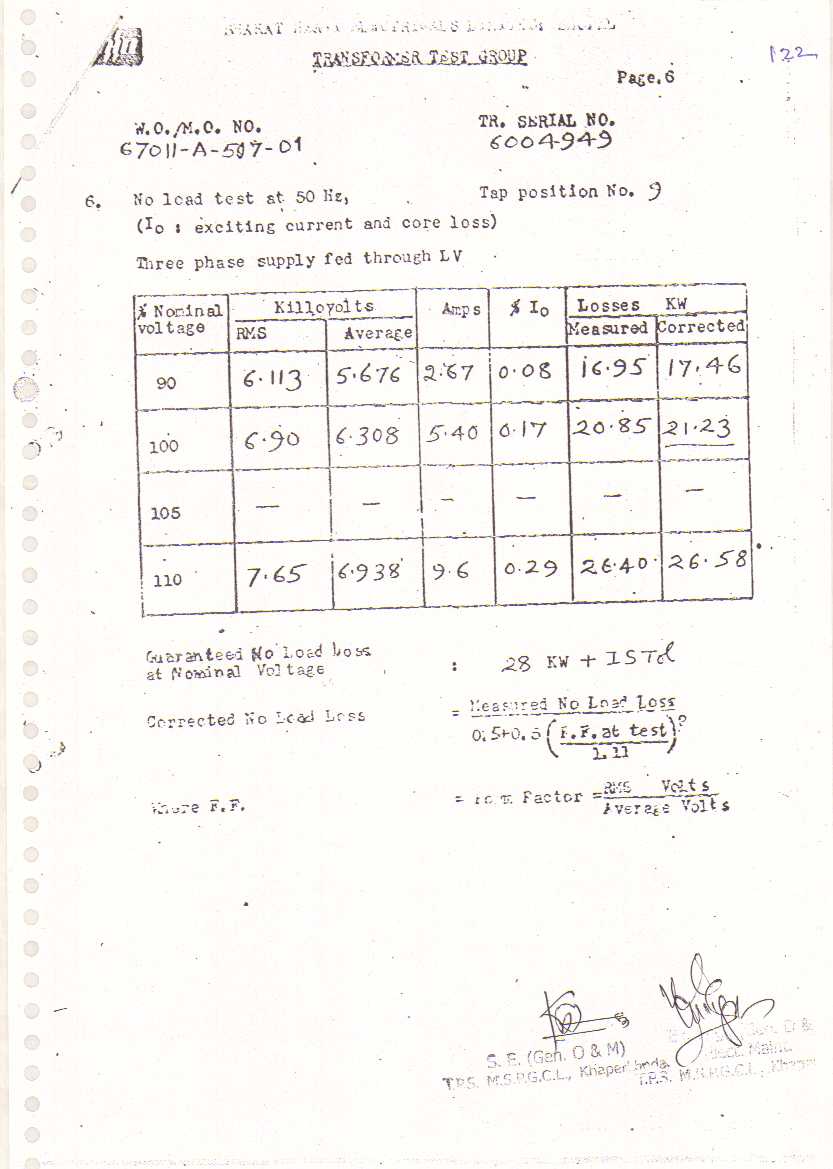 BHARAT HEAVY ELECTRICALS LIMITED
TRANSFORMER TEST GROUP
122
Page.6
W.O./M.O. NO.
TR. SERIAL NO.
67011-A-507-01
6004949
6. No load test at 50 Hz, Tap position No. 9
(Io : exciting current and core loss)
Three phase supply fed through LV
% Nominal voltage Killovolts Amps % Io Losses KW
RMS Average Measured Corrected
90 6.113 5.676 2.67 0.08 16.95 17.46
100 6.90 6.308 5.40 0.17 20.85 21.23
105 — — — — — —
110 7.65 6.938 9.6 0.29 26.40 26.58
Guaranteed No Load Loss
at Nominal Voltage : 28 KW + ISTd
Corrected No Load Loss = Measured No Load Loss
0.5+0.5 (F.F. at test)2
1.11
Where F.F. = Form Factor = RMS Volts
Average Volts
S. E. (Gen. O & M)
T.P.S. M.S.P.G.C.L., Khaperkheda.
O &
Maint.
T.P.S. M.S.P.G.C.L., Khaper